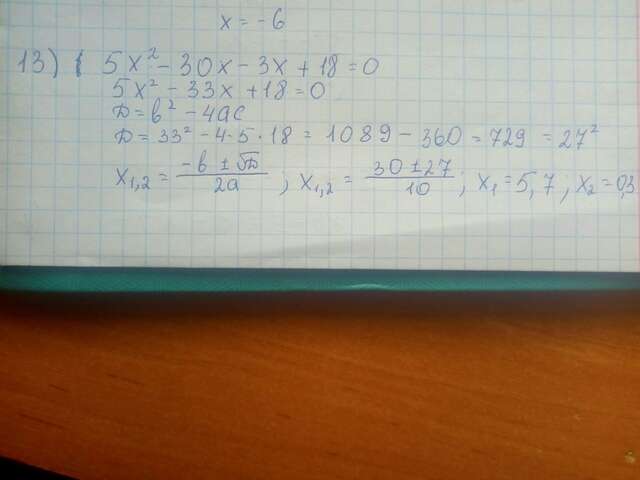 x = -6
13) 5x² - 30x - 3x + 18 = 0
5x² - 33x + 18 = 0
Д = b² - 4ac
Д = 33² - 4·5·18 = 1089 - 360 = 729 = 27²
x₁,₂ = (-b ± √Д)/2a ; x₁,₂ = (30 ± 27)/10 ; x₁ = 5,7 ; x₂ = 0,3